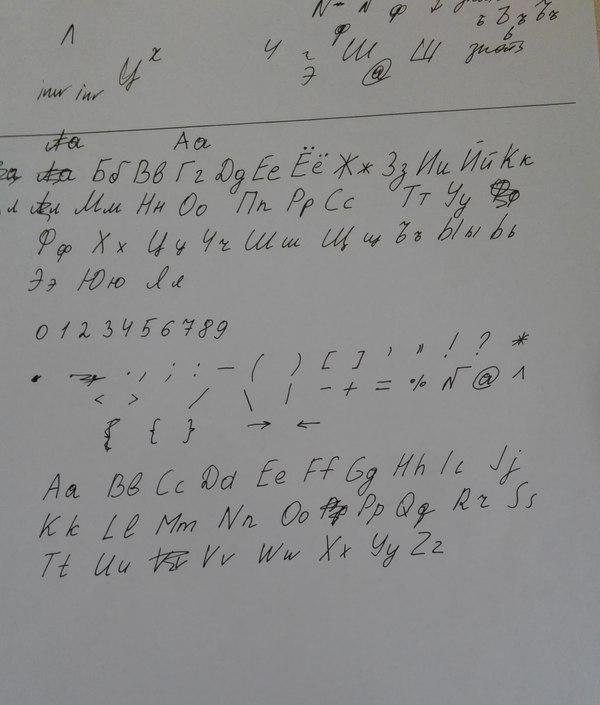 N N ф
ъ Ъ ъ Ъъ
Λ ч г ф Ш Ш знать ь
inv inv У x Э @
Аа Аа
Бб Вв Гг Дд Ее Ёё Жж Зз Ии Йй Кк
Мм Нн Оо Пп Рр Сс Тт Уу
Фф Хх Цц Чч Шш Щщ Ъъ Ыы Ьь
Ээ Юю Яя
0 1 2 3 4 5 6 7 8 9
. , ; : - ( ) [ ] ' " ! ? *
< > / \ | - + = % N @ ^
{ } → ←
Aa Bb Cc Dd Ee Ff Gg Hh Ii Jj
Kk Ll Mm Nn Oo Pp Qq Rr Ss
Tt Uu Vv Ww Xx Yy Zz